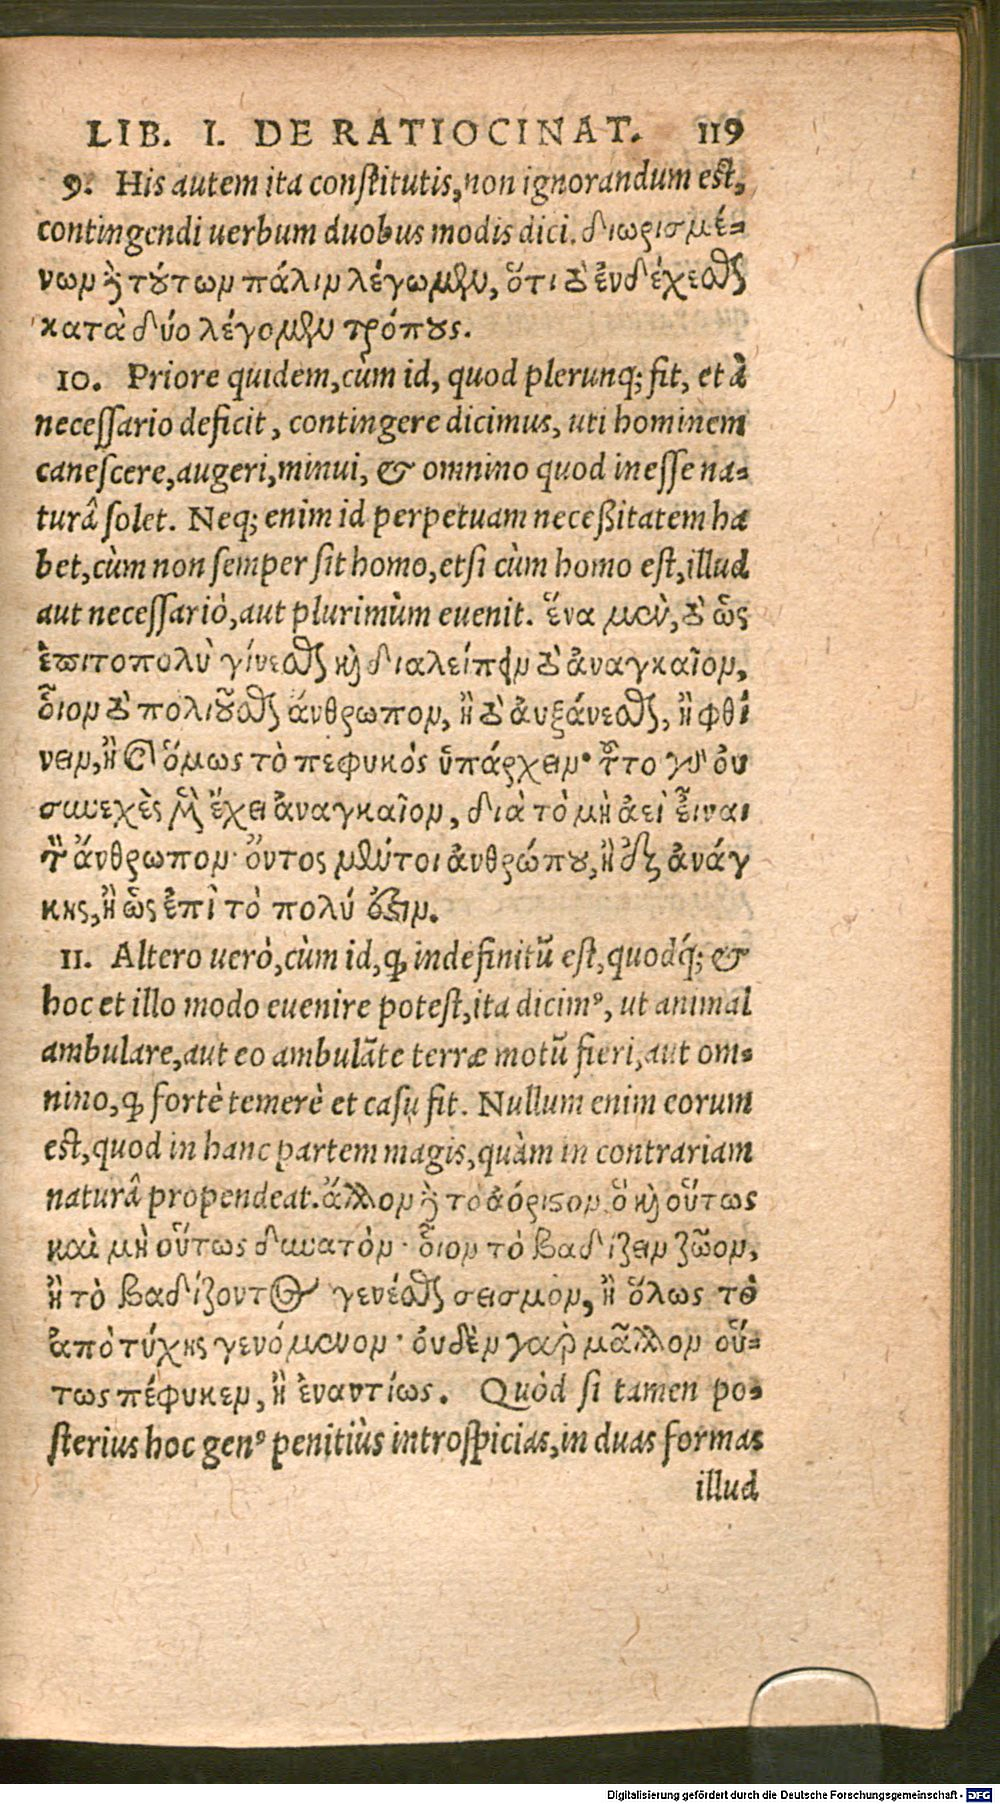 LIB. I. DE RATIOCINAT. 119
9. His autem ita constitutis, non ignorandum est,
contingendi uerbum duobus modis dici. διωρισμέ-
νων δὲ τούτων πάλιν λέγωμεν, ὅτι τὸ ἐνδέχεσθαι
κατὰ δύο λέγομεν τρόπους.
10. Priore quidem, cùm id, quod plerunq; fit, et à
necessario deficit, contingere dicimus, uti hominem
canescere, augeri, minui, & omnino quod inesse na-
turâ solet. Neq; enim id perpetuam necessitatem ha
bet, cùm non semper sit homo, etsi cùm homo est, illud
aut necessariò, aut plurimùm euenit. ἕνα μὲν, τὸ ὡς
ἐπιτοπολὺ γίνεσθαι καὶ διαλείπειν τὸ ἀναγκαῖον,
οἷον τὸ πολιοῦσθαι ἄνθρωπον, ἢ τὸ ἀυξάνεσθαι, ἢ φθί
νειν, ἢ ὅμως τὸ πεφυκὸς ὑπάρχειν· τοῦτο γὰρ οὐ
συνεχὲς μὲν ἔχει ἀναγκαῖον, διὰ τὸ μὴ ἀεὶ εἶναι
τὸν ἄνθρωπον· ὄντος μέντοι ἀνθρώπου, ἢ ἐξ ἀνάγ
κης, ἢ ὡς ἐπὶ τὸ πολύ ἐστιν.
11. Altero uerò, cùm id, qđ indefinitũ est, quodq́; &
hoc et illo modo euenire potest, ita dicimꝰ, ut animal
ambulare, aut eo ambulãte terræ motũ fieri, aut om-
nino, qđ fortè temerè et casu fit. Nullum enim eorum
est, quod in hanc partem magis, quàm in contrariam
naturâ propendeat. ἄλλον δὲ τὸ ἀόριστον, ὃ καὶ οὕτως
καὶ μὴ οὕτως δυνατόν· οἷον τὸ βαδίζειν ζῶον,
ἢ τὸ βαδίζοντος γενέσθαι σεισμόν, ἢ ὅλως τὸ
ἀπὸ τύχης γενόμενον· οὐδὲν γὰρ μᾶλλον οὕ-
τως πέφυκεν, ἢ ἐναντίως. Quòd si tamen po-
sterius hoc genꝰ penitiùs introspicias, in duas formas
illud
Digitalisierung gefördert durch die Deutsche Forschungsgemeinschaft - DFG